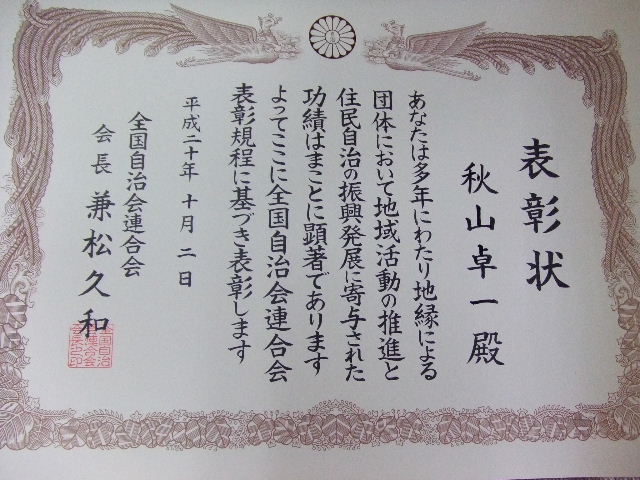 表彰状
秋山卓一殿
あなたは多年にわたり地縁による
団体において地域活動の推進と
住民自治の振興発展に寄与された
功績はまことに顕著であります
よってここに全国自治会連合会
表彰規程に基づき表彰します
平成二十年十月二日
全国自治会連合会
会長兼松久和